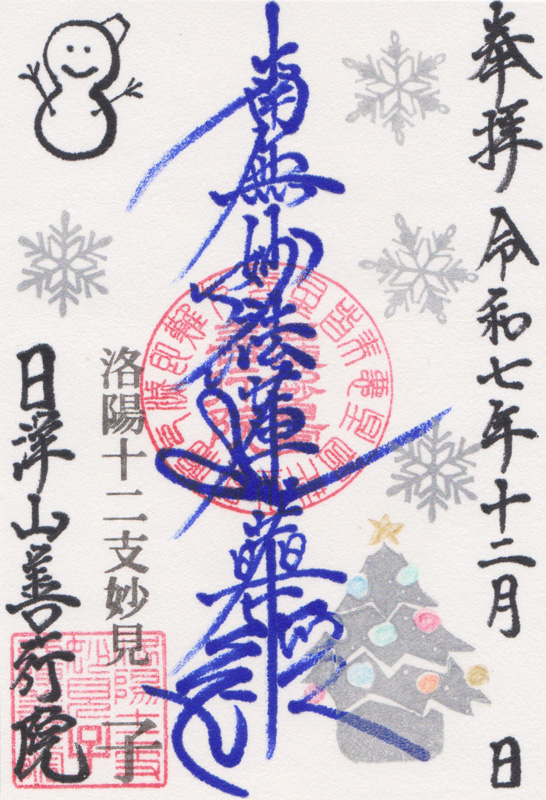 奉拝 令和七年十二月 日
南無妙法蓮華經
洛陽十二支妙見 子
山善行院